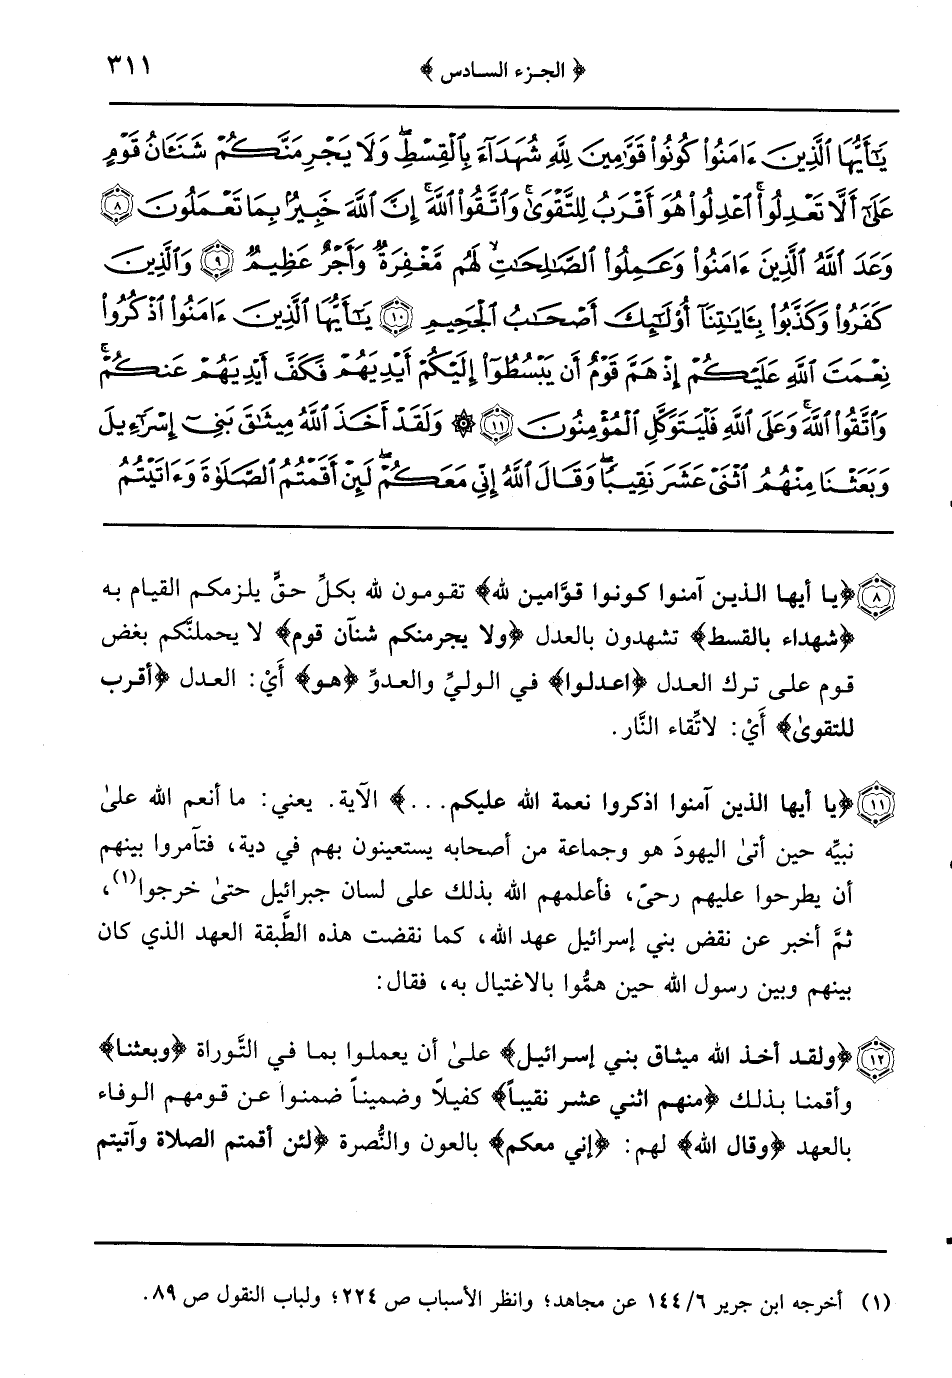 ﴿ الجزء السادس ﴾ ٣١١
يَٰٓأَيُّهَا ٱلَّذِينَ ءَامَنُوا۟ كُونُوا۟ قَوَّٰمِينَ لِلَّهِ شُهَدَآءَ بِٱلْقِسْطِ ۖ وَلَا يَجْرِمَنَّكُمْ شَنَـَٔانُ قَوْمٍ
عَلَىٰٓ أَلَّا تَعْدِلُوا۟ ۚ ٱعْدِلُوا۟ هُوَ أَقْرَبُ لِلتَّقْوَىٰ ۖ وَٱتَّقُوا۟ ٱللَّهَ ۚ إِنَّ ٱللَّهَ خَبِيرٌۢ بِمَا تَعْمَلُونَ ٨
وَعَدَ ٱللَّهُ ٱلَّذِينَ ءَامَنُوا۟ وَعَمِلُوا۟ ٱلصَّٰلِحَٰتِ ۙ لَهُم مَّغْفِرَةٌ وَأَجْرٌ عَظِيمٌ ٩ وَٱلَّذِينَ
كَفَرُوا۟ وَكَذَّبُوا۟ بِـَٔايَٰتِنَآ أُو۟لَٰٓئِكَ أَصْحَٰبُ ٱلْجَحِيمِ ١٠ يَٰٓأَيُّهَا ٱلَّذِينَ ءَامَنُوا۟ ٱذْكُرُوا۟
نِعْمَتَ ٱللَّهِ عَلَيْكُمْ إِذْ هَمَّ قَوْمٌ أَن يَبْسُطُوٓا۟ إِلَيْكُمْ أَيْدِيَهُمْ فَكَفَّ أَيْدِيَهُمْ عَنكُمْ ۖ
وَٱتَّقُوا۟ ٱللَّهَ ۚ وَعَلَى ٱللَّهِ فَلْيَتَوَكَّلِ ٱلْمُؤْمِنُونَ ١١ ۞ وَلَقَدْ أَخَذَ ٱللَّهُ مِيثَٰقَ بَنِىٓ إِسْرَٰٓءِيلَ
وَبَعَثْنَا مِنْهُمُ ٱثْنَىْ عَشَرَ نَقِيبًا ۖ وَقَالَ ٱللَّهُ إِنِّى مَعَكُمْ ۖ لَئِنْ أَقَمْتُمُ ٱلصَّلَوٰةَ وَءَاتَيْتُمُ
٨ ﴿يا أيها الذين آمنوا كونوا قوَّامين لله﴾ تقومون لله بكلِّ حقٍّ يلزمكم القيام به
﴿شهداء بالقسط﴾ تشهدون بالعدل ﴿ولا يجرمنكم شنآن قوم﴾ لا يحملنَّكم بغض
قوم على ترك العدل ﴿اعدلوا﴾ في الوليِّ والعدوِّ ﴿هو﴾ أَيْ: العدل ﴿أقرب
للتقوىٰ﴾ أَيْ: لاتِّقاء النَّار.
١١ ﴿يا أيها الذين آمنوا اذكروا نعمة الله عليكم...﴾ الآية. يعني: ما أنعم الله علىٰ
نبيِّه حين أتىٰ اليهودَ هو وجماعة من أصحابه يستعينون بهم في دية، فتآمروا بينهم
أن يطرحوا عليهم رحىً، فأعلمهم الله بذلك على لسان جبرائيل حتىٰ خرجوا(١)،
ثمَّ أخبر عن نقض بني إسرائيل عهد الله، كما نقضت هذه الطَّبقة العهد الذي كان
بينهم وبين رسول الله حين همُّوا بالاغتيال به، فقال:
١٢ ﴿ولقد أخذ الله ميثاق بني إسرائيل﴾ علىٰ أن يعملوا بما في التَّوراة ﴿وبعثنا﴾
وأقمنا بذلك ﴿منهم اثني عشر نقيباً﴾ كفيلاً وضميناً ضمنوا عن قومهم الوفاء
بالعهد ﴿وقال الله﴾ لهم: ﴿إني معكم﴾ بالعون والنُّصرة ﴿لئن أقمتم الصلاة وآتيتم
(١) أخرجه ابن جرير ١٤٤/٦ عن مجاهد؛ وانظر الأسباب ص ٢٢٤؛ ولباب النقول ص ٨٩.